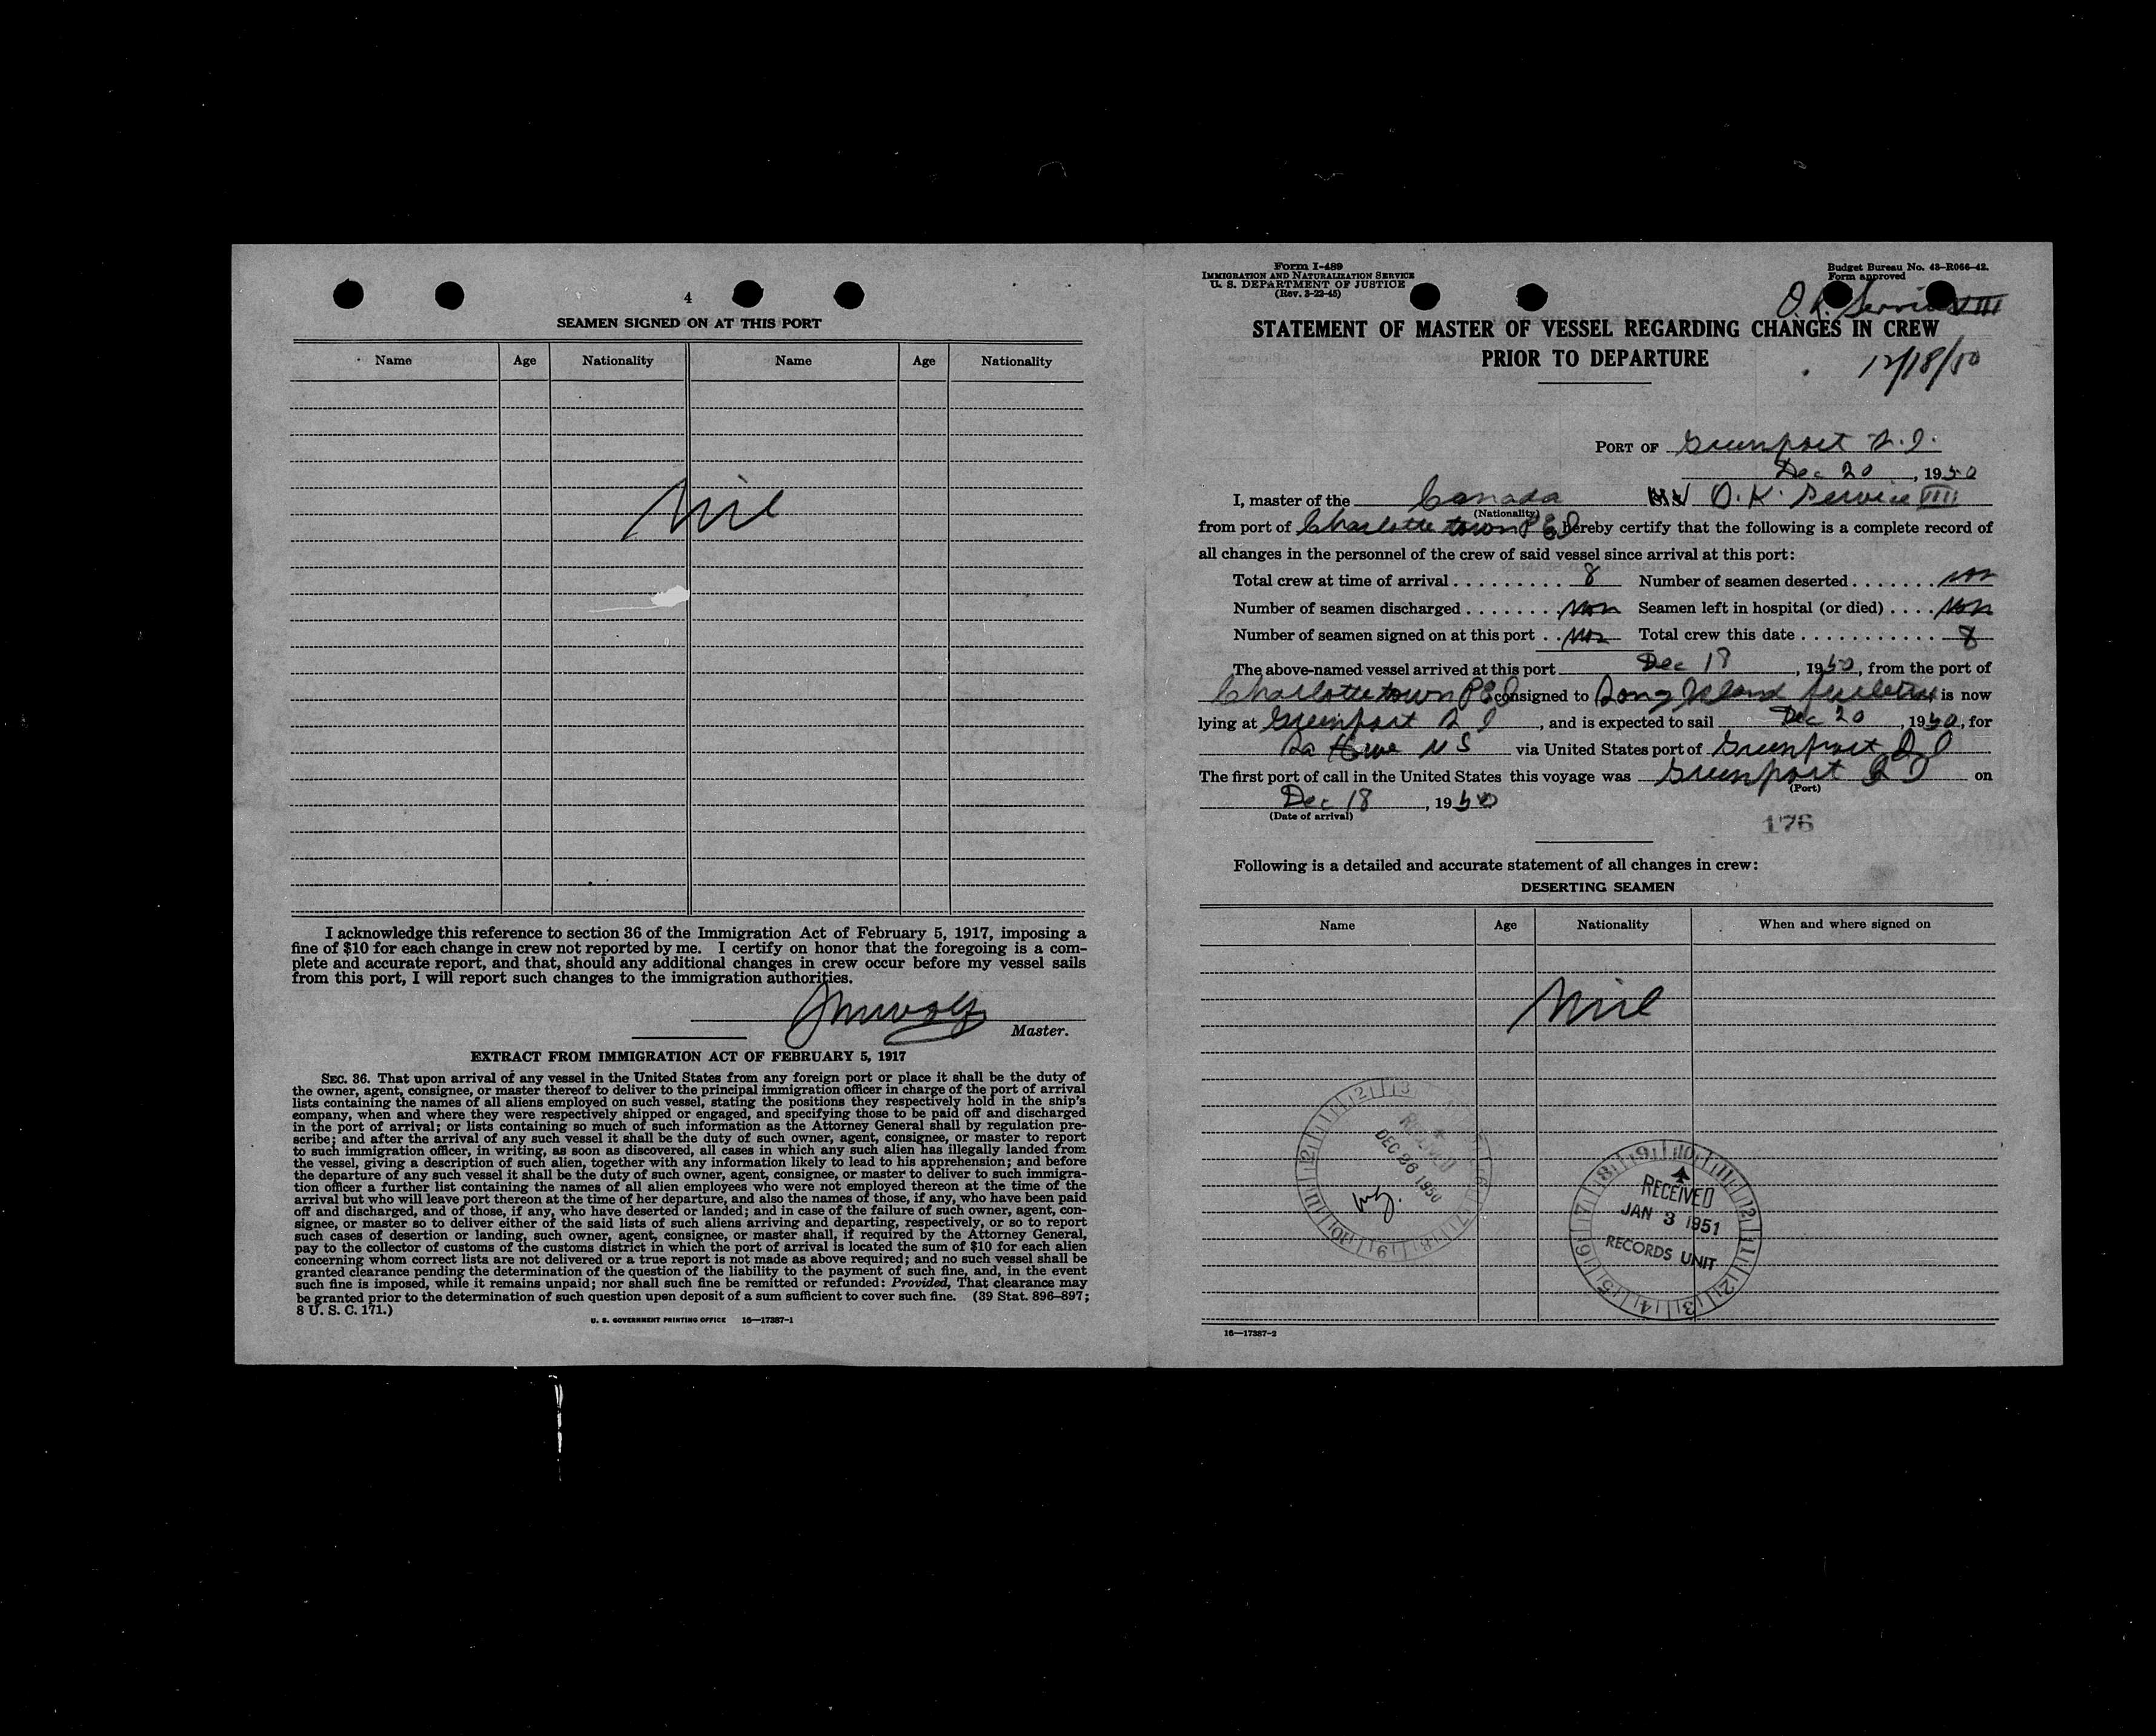 4
SEAMEN SIGNED ON AT THIS PORT
Name Age Nationality Name Age Nationality
Nil
I acknowledge this reference to section 36 of the Immigration Act of February 5, 1917, imposing a
fine of $10 for each change in crew not reported by me. I certify on honor that the foregoing is a com-
plete and accurate report, and that, should any additional changes in crew occur before my vessel sails
from this port, I will report such changes to the immigration authorities.
Master.
EXTRACT FROM IMMIGRATION ACT OF FEBRUARY 5, 1917
SEC. 36. That upon arrival of any vessel in the United States from any foreign port or place it shall be the duty of
the owner, agent, consignee, or master thereof to deliver to the principal immigration officer in charge of the port of arrival
lists containing the names of all aliens employed on such vessel, stating the positions they respectively hold in the ship's
company, when and where they were respectively shipped or engaged, and specifying those to be paid off and discharged
in the port of arrival; or lists containing so much of such information as the Attorney General shall by regulation pre-
scribe; and after the arrival of any such vessel it shall be the duty of such owner, agent, consignee, or master to report
to such immigration officer, in writing, as soon as discovered, all cases in which any such alien has illegally landed from
the vessel, giving a description of such alien, together with any information likely to lead to his apprehension; and before
the departure of any such vessel it shall be the duty of such owner, agent, consignee, or master to deliver to such immigra-
tion officer a further list containing the names of all alien employees who were not employed thereon at the time of the
arrival but who will leave port thereon at the time of her departure, and also the names of those, if any, who have been paid
off and discharged, and of those, if any, who have deserted or landed; and in case of the failure of such owner, agent, con-
signee, or master so to deliver either of the said lists of such aliens arriving and departing, respectively, or so to report
such cases of desertion or landing, such owner, agent, consignee, or master shall, if required by the Attorney General,
pay to the collector of customs of the customs district in which the port of arrival is located the sum of $10 for each alien
concerning whom correct lists are not delivered or a true report is not made as above required; and no such vessel shall be
granted clearance pending the determination of the question of the liability to the payment of such fine, and, in the event
such fine is imposed, while it remains unpaid; nor shall such fine be remitted or refunded: Provided, That clearance may
be granted prior to the determination of such question upon deposit of a sum sufficient to cover such fine. (39 Stat. 896–897;
8 U. S. C. 171.)
U. S. GOVERNMENT PRINTING OFFICE 16—17387-1
Form I-489
IMMIGRATION AND NATURALIZATION SERVICE
U. S. DEPARTMENT OF JUSTICE
(Rev. 3-22-45)
Budget Bureau No. 43–R066–42.
Form approved
O.K. Service VIII
STATEMENT OF MASTER OF VESSEL REGARDING CHANGES IN CREW
PRIOR TO DEPARTURE
12/18/50
PORT OF Greenport L.I.
Dec 20, 1950
I, master of the Canada O.K. Service VIII
(Nationality)
from port of Charlottetown P E I hereby certify that the following is a complete record of
all changes in the personnel of the crew of said vessel since arrival at this port:
Total crew at time of arrival 8 Number of seamen deserted non
Number of seamen discharged non Seamen left in hospital (or died) non
Number of seamen signed on at this port non Total crew this date 8
The above-named vessel arrived at this port Dec 18, 1950, from the port of
Charlottetown P E I consigned to Long Island is now
lying at Greenport L I, and is expected to sail Dec 20, 1950, for
La Have N S via United States port of Greenport L I
The first port of call in the United States this voyage was Greenport L I on
(Port)
Dec 18, 1950
(Date of arrival)
176
Following is a detailed and accurate statement of all changes in crew:
DESERTING SEAMEN
Name Age Nationality When and where signed on
Nil
RECEIVED
DEC 26 1950
RECEIVED
JAN 3 1951
RECORDS UNIT
16—17387-2